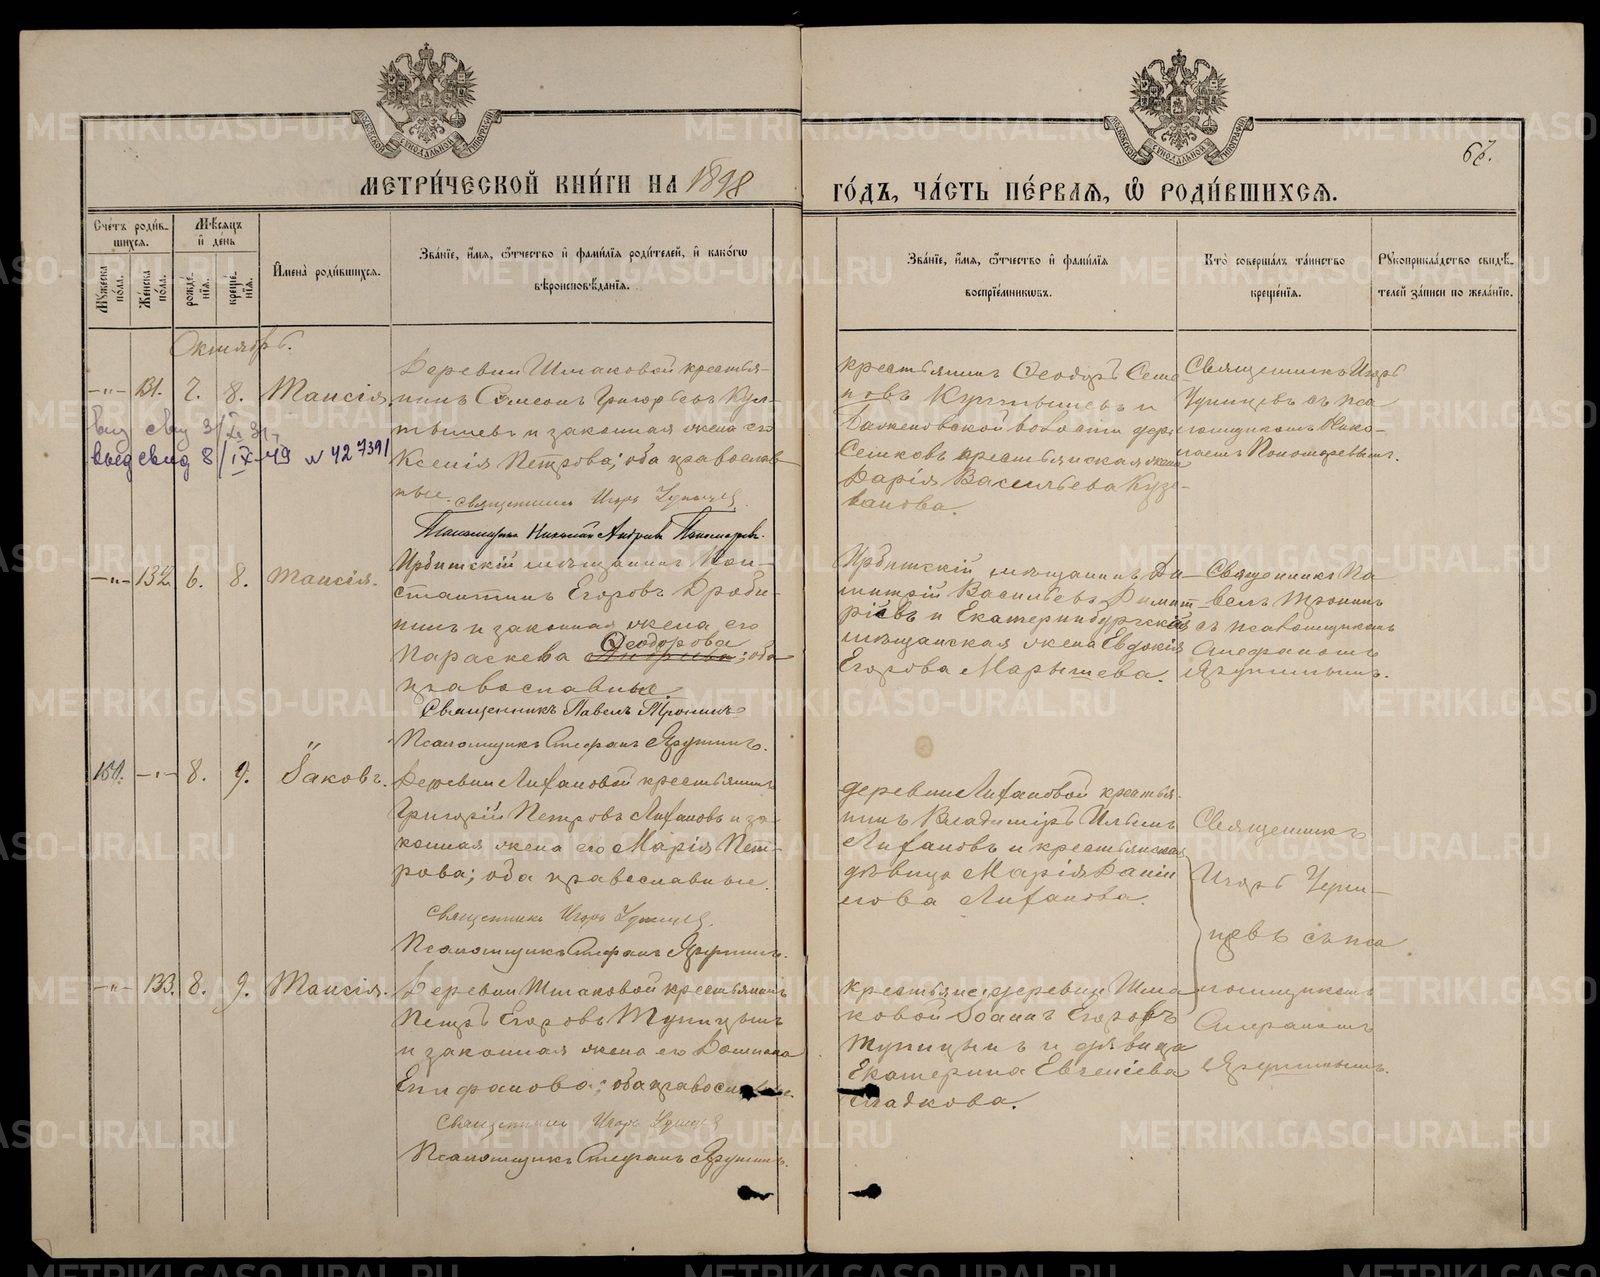 МЕТРИ́ЧЕСКОЙ КНИ́ГИ НА 1898
ГО́ДЪ, ЧА́СТЬ ПЕ́РВАЯ, Ѡ҆ РОДИ́ВШИХСЯ.
67.
Сче́тъ роди́в-
шихся.
Му́жеска по́ла.
Же́нска по́ла.
Мѣ́сяцъ и҆ де́нь
рожде́нія.
креще́нія.
И҆мена̀ роди́вшихся.
Зва́нїе, и҆́мя, ѻ҆́тчество и҆ фами́лїя роди́телей, и҆ како́гѡ
вѣроисповѣ́данїя.
Зва́нїе, и҆́мя, ѻ҆́тчество и҆ фами́лїя
воспрїе́мниковъ.
Кто̀ соверша́лъ та́инство
креще́нїя.
Рꙋкоприкла́дство свидѣ́-
телей за́писи по жела́нїю.
Октябрь.
—"— 131. 7. 8. Таисія.
Деревни Шмаковой крестья-
нинъ Симеонъ Григорьевъ Кул-
тышевъ и законная жена его
Ксенія Петрова; оба православ-
ные.
Священникъ Игорь
Псаломщикъ Николай Андреевъ Пономаревъ.
крестьянинъ Ѳеодоръ Семе-
новъ Култышевъ и
волости дер.
крестьянская жена
Дарія Васильева Кузе-
ванова.
Священникъ Игорь
съ пса
ломщикомъ Нико-
лаемъ Пономаревымъ.
выд свид 8/IX-49 № 427391
—"— 132. 6. 8. Таисія.
Ирбитскій мѣщанинъ Кон-
стантинъ Егоровъ Дроби-
нинъ и законная жена его
Ѳеодорова
Параскева ; оба
православные
Священникъ Павелъ Тронинъ
Псаломщикъ Стефанъ Ярутинъ.
Ирбитскій мѣщанинъ Ди-
митрій Васильевъ Димит-
ріевъ и Екатеринбургская
мѣщанская жена Евдокія
Егорова Марышева.
Священникъ Па
велъ Тронинъ
съ псаломщикомъ
Стефаномъ
Ярутинымъ.
151. —"— 8. 9. Іаковъ.
Деревни Лифановой крестьянинъ
Григорій Петровъ Лифановъ и за-
конная жена его Марія Пет-
рова; оба православные.
Священникъ Игорь
Псаломщикъ Стефанъ Ярутинъ.
деревни Лифановой крестья-
нинъ Владиміръ Ильинъ
Лифановъ и крестьянская
дѣвица Марія Даніи
лова Лифанова.
Священникъ
Игорь
съ пса
ломщикомъ
Стефаномъ
Ярутинымъ.
—"— 133. 8. 9. Таисія.
Деревни Шмаковой крестьянинъ
Петръ Егоровъ Тупицынъ
и законная жена его Домника
Епифанова; оба православные.
Священникъ Игорь
Псаломщикъ Стефанъ Ярутинъ.
крестьяне: деревни Шма
ковой Іоаннъ Егоровъ
Тупицынъ и дѣвица
Екатерина Евгеніева
Гладкова.
METRIKI.GASO-URAL.RU